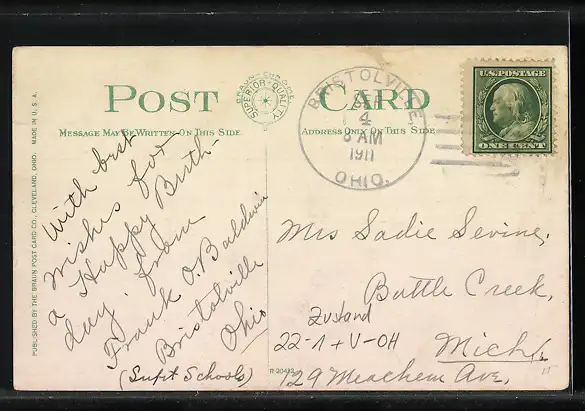 POST CARD
BRAUN-CHROME
SUPERIOR-QUALITY
MESSAGE MAY BE WRITTEN ON THIS SIDE
ADDRESS ONLY ON THIS SIDE
PUBLISHED BY THE BRAUN POST CARD CO., CLEVELAND, OHIO. MADE IN U. S. A.
BRISTOLVILLE
4
8 AM
1911
OHIO.
U.S. POSTAGE
ONE CENT
With best
wishes for
a Happy Birth-
day. from
Frank O. Baldwin
Bristolville
Ohio
(Supt Schools)
Mrs Sadie Sevine,
Battle Creek,
Mich.
129 Meachem Ave.
Zustand
22-1+V-OH